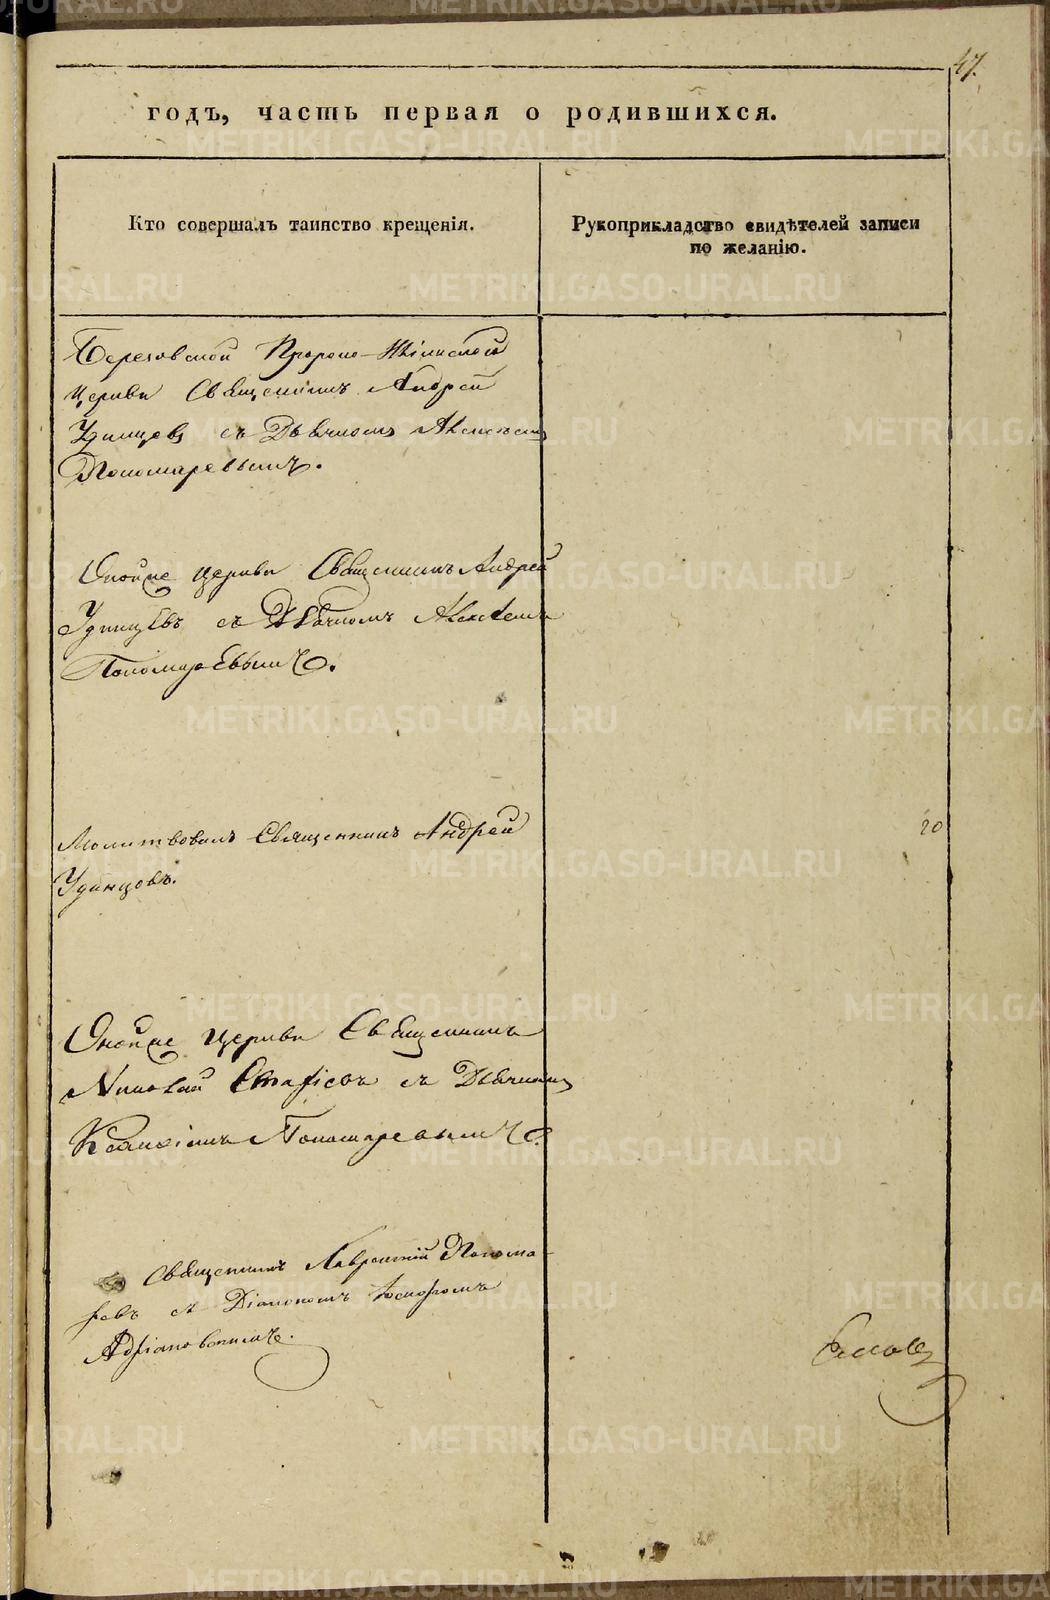 47.
годъ, часть первая о родившихся.
Кто совершалъ таинство крещенія.
Рукоприкладство свидѣтелей записи
по желанію.
Березовской Пророко-Ильинской
церкви Священникъ Андрей
Удинцевъ съ Дьячкомъ Алексѣемъ
Пономаревымъ.
Оной же церкви Священникъ Андрей
Удинцевъ съ Дьячкомъ Алексѣемъ
Пономаревымъ.
Молитвовалъ Священникъ Андрей
Удинцовъ.
20
Оной же церкви Священникъ
Николай съ Дьячкомъ
Пономаревымъ.
Священникъ Лаврентій Понома-
ревъ съ Діакономъ
Адріановскимъ.
METRIKI.GASO-URAL.RU